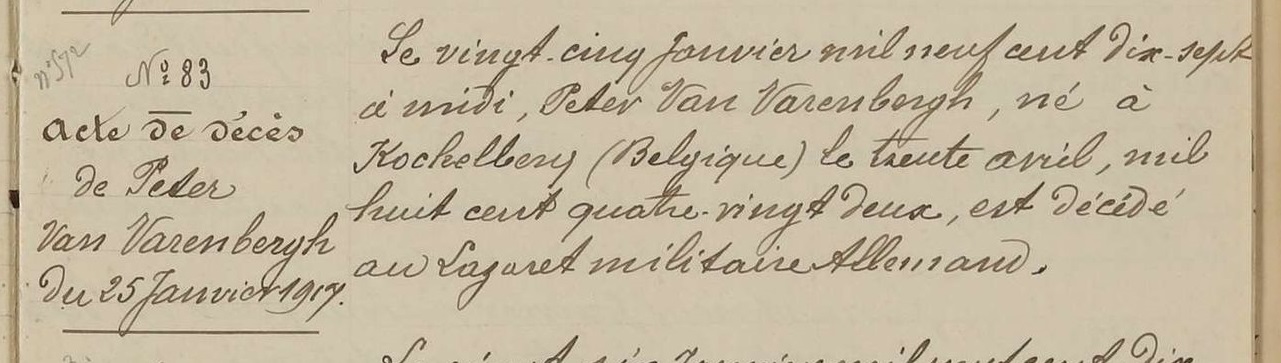 n° 572
N° 83
Acte de décès
de Peter
Van Varenbergh
du 25 Janvier 1917.
Le vingt-cinq Janvier mil neuf cent dix-sept
à midi, Peter Van Varenbergh, né à
Kochelberg (Belgique) le trente avril, mil
huit cent quatre-vingt deux, est décédé
au Lazaret militaire Allemand.